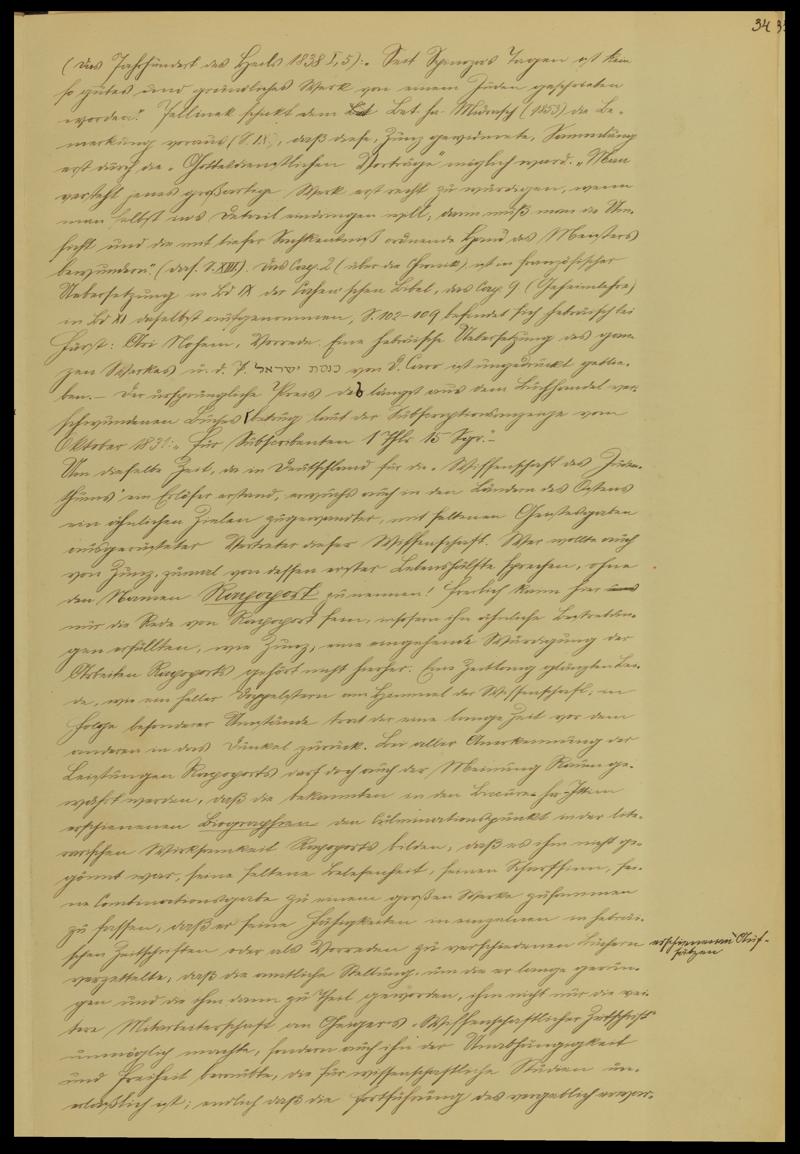 34 35
(Das Jahrhundert des Heils 1838 I, 5): „Seit Spinozas Tagen ist kein
so gutes und gründliches Werk von einem Juden geschrieben
worden." Jellinek schickt dem Bet ha-Midrasch (1853) die Be-
merkung voraus (S. IX), daß diese, Zunz gewidmete, Sammlung
erst durch die „Gottesdienstlichen Vorträge" möglich ward. „Man
versteht jenes großartige Werk erst recht zu würdigen, wenn
man selbst ins Detail eindringen will; dann muß man die Um-
sicht und die mit tiefer Sachkenntniß ordnende Hand des Meisters
bewundern." (das. S. XVIII). Das Cap. 2 (über die Chronik) ist in französischer
Uebersetzung in Bd IX der Cahen'schen Bibel, das Cap. 9 (Geheimlehre)
in Bd XI daselbst aufgenommen, S. 102-109 befindet sich hebräisch bei
Fürst: Ari Nohem, Vorrede. Eine hebräische Uebersetzung des gan-
zen Werkes u. d. T. כנסת ישראל von D. Caro ist ungedruckt geblie-
ben. — Der ursprüngliche Preis des längst aus dem Buchhandel ver-
schwundenen Buches betrug laut der Subscriptionsanzeige vom
Oktober 1831: „Für Subscribenten 1 Thlr 15 Sgr." —
Um dieselbe Zeit, da in Deutschland für die „Wissenschaft des Juden-
thums" ein Erlöser erstand, erwuchs auch in den Ländern des Ostens
ein ähnlichen Zielen zugewandter, mit seltenen Geistesgaben
ausgerüsteter Vertreter dieser Wissenschaft. Wer wollte auch
von Zunz, zumal von dessen erster Lebenshälfte sprechen, ohne
den Namen Rapoport zu nennen! Freilich kann hier
nur die Rede von Rapoport sein, insofern ihn ähnliche Bestrebun-
gen erfüllten, wie Zunz, eine eingehende Würdigung der
Arbeiten Rapoports gehört nicht hierher. Eine Zeitlang glänzten bei-
de, wie ein heller Doppelstern am Himmel der Wissenschaft; in
Folge besonderer Umstände trat der eine lange Zeit vor dem
anderen in das Dunkel zurück. Bei aller Anerkennung der
Leistungen Rapoports darf doch auch der Meinung Raum ge-
währt werden, daß die bekannten in den Biccure ha-Ittim
erschienenen Biographien den Culminationspunkt in der lite-
rarischen Wirksamkeit Rapoports bilden, daß es ihm nicht ge-
gönnt war, seine seltene Belesenheit, seinen Scharfsinn, sei-
ne Combinationsgabe zu einem großen Werke zusammen
zu fassen, daß er seine Fähigkeiten in einzelnen in hebräi-
schen Zeitschriften oder als Vorreden zu verschiedenen Büchern erschienenen Auf-
sätzen
verzettelte, daß die amtliche Stellung, um die er lange gerun-
gen und die ihm dann zu Theil geworden, ihm nicht nur die wei-
tere Mitarbeiterschaft an Geigers „Wissenschaftlicher Zeitschrift"
unmöglich machte, sondern auch ihn der Unabhängigkeit
und Freiheit beraubte, die für wissenschaftliche Studien un-
erläßlich ist; endlich daß die Fortführung des vergeblich erwar-